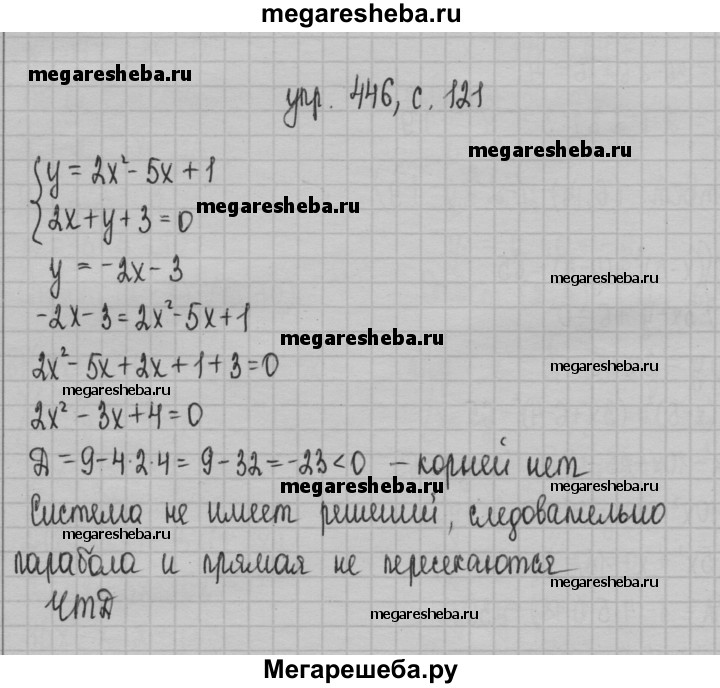 megaresheba.ru
megaresheba.ru
упр. 446, с. 121
megaresheba.ru
y = 2x² - 5x + 1
megaresheba.ru
2x + y + 3 = 0
y = -2x - 3
megaresheba.ru
-2x - 3 = 2x² - 5x + 1
megaresheba.ru
2x² - 5x + 2x + 1 + 3 = 0
megaresheba.ru
megaresheba.ru
2x² - 3x + 4 = 0
Д = 9 - 4·2·4 = 9 - 32 = -23 < 0 - корней нет
megaresheba.ru
megaresheba.ru
Система не имеет решений, следовательно
megaresheba.ru
парабола и прямая не пересекаются
megaresheba.ru
ЧтД
megaresheba.ru
Мегарешеба.ру